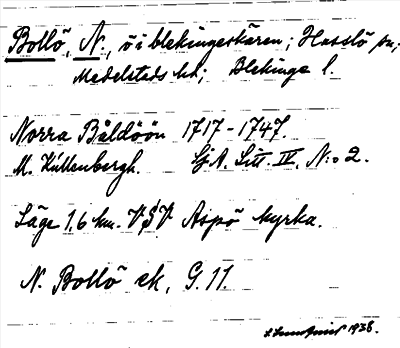 Bollö, N., ö i blekingeskären; Hasslö sn,
Medelstads hd; Blekinge l.
Norra Båldöön 1717-1747.
M. Kullenbergh. SjA. Litt. IV. N:o 2.
Läge 1,6 km. VSV Aspö kyrka.
N. Bollö ek, G. 11.
1938.